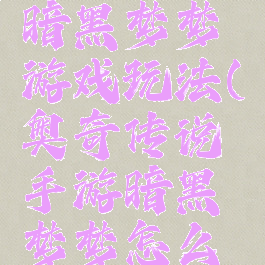 暗黑梦梦
游戏玩法(
奥奇传说
手游暗黑
梦梦怎么